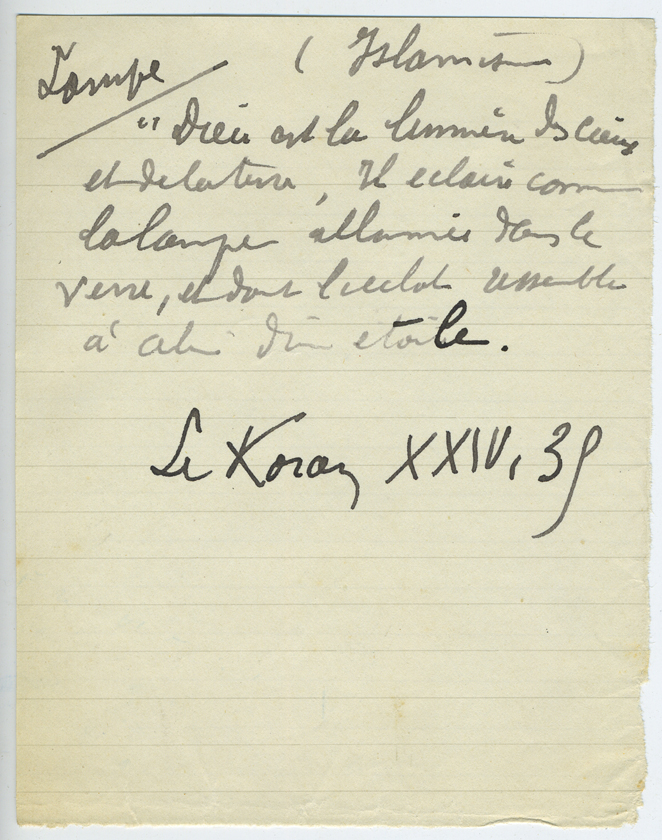 Lampe (Islamisme)
" Dieu est la lumière des cieux
et de la terre, Il eclaire comme
la lampe allumée dans le
verre, et dont l'eclat ressemble
à celui d'une etoile.
Le Koran XXIV, 35